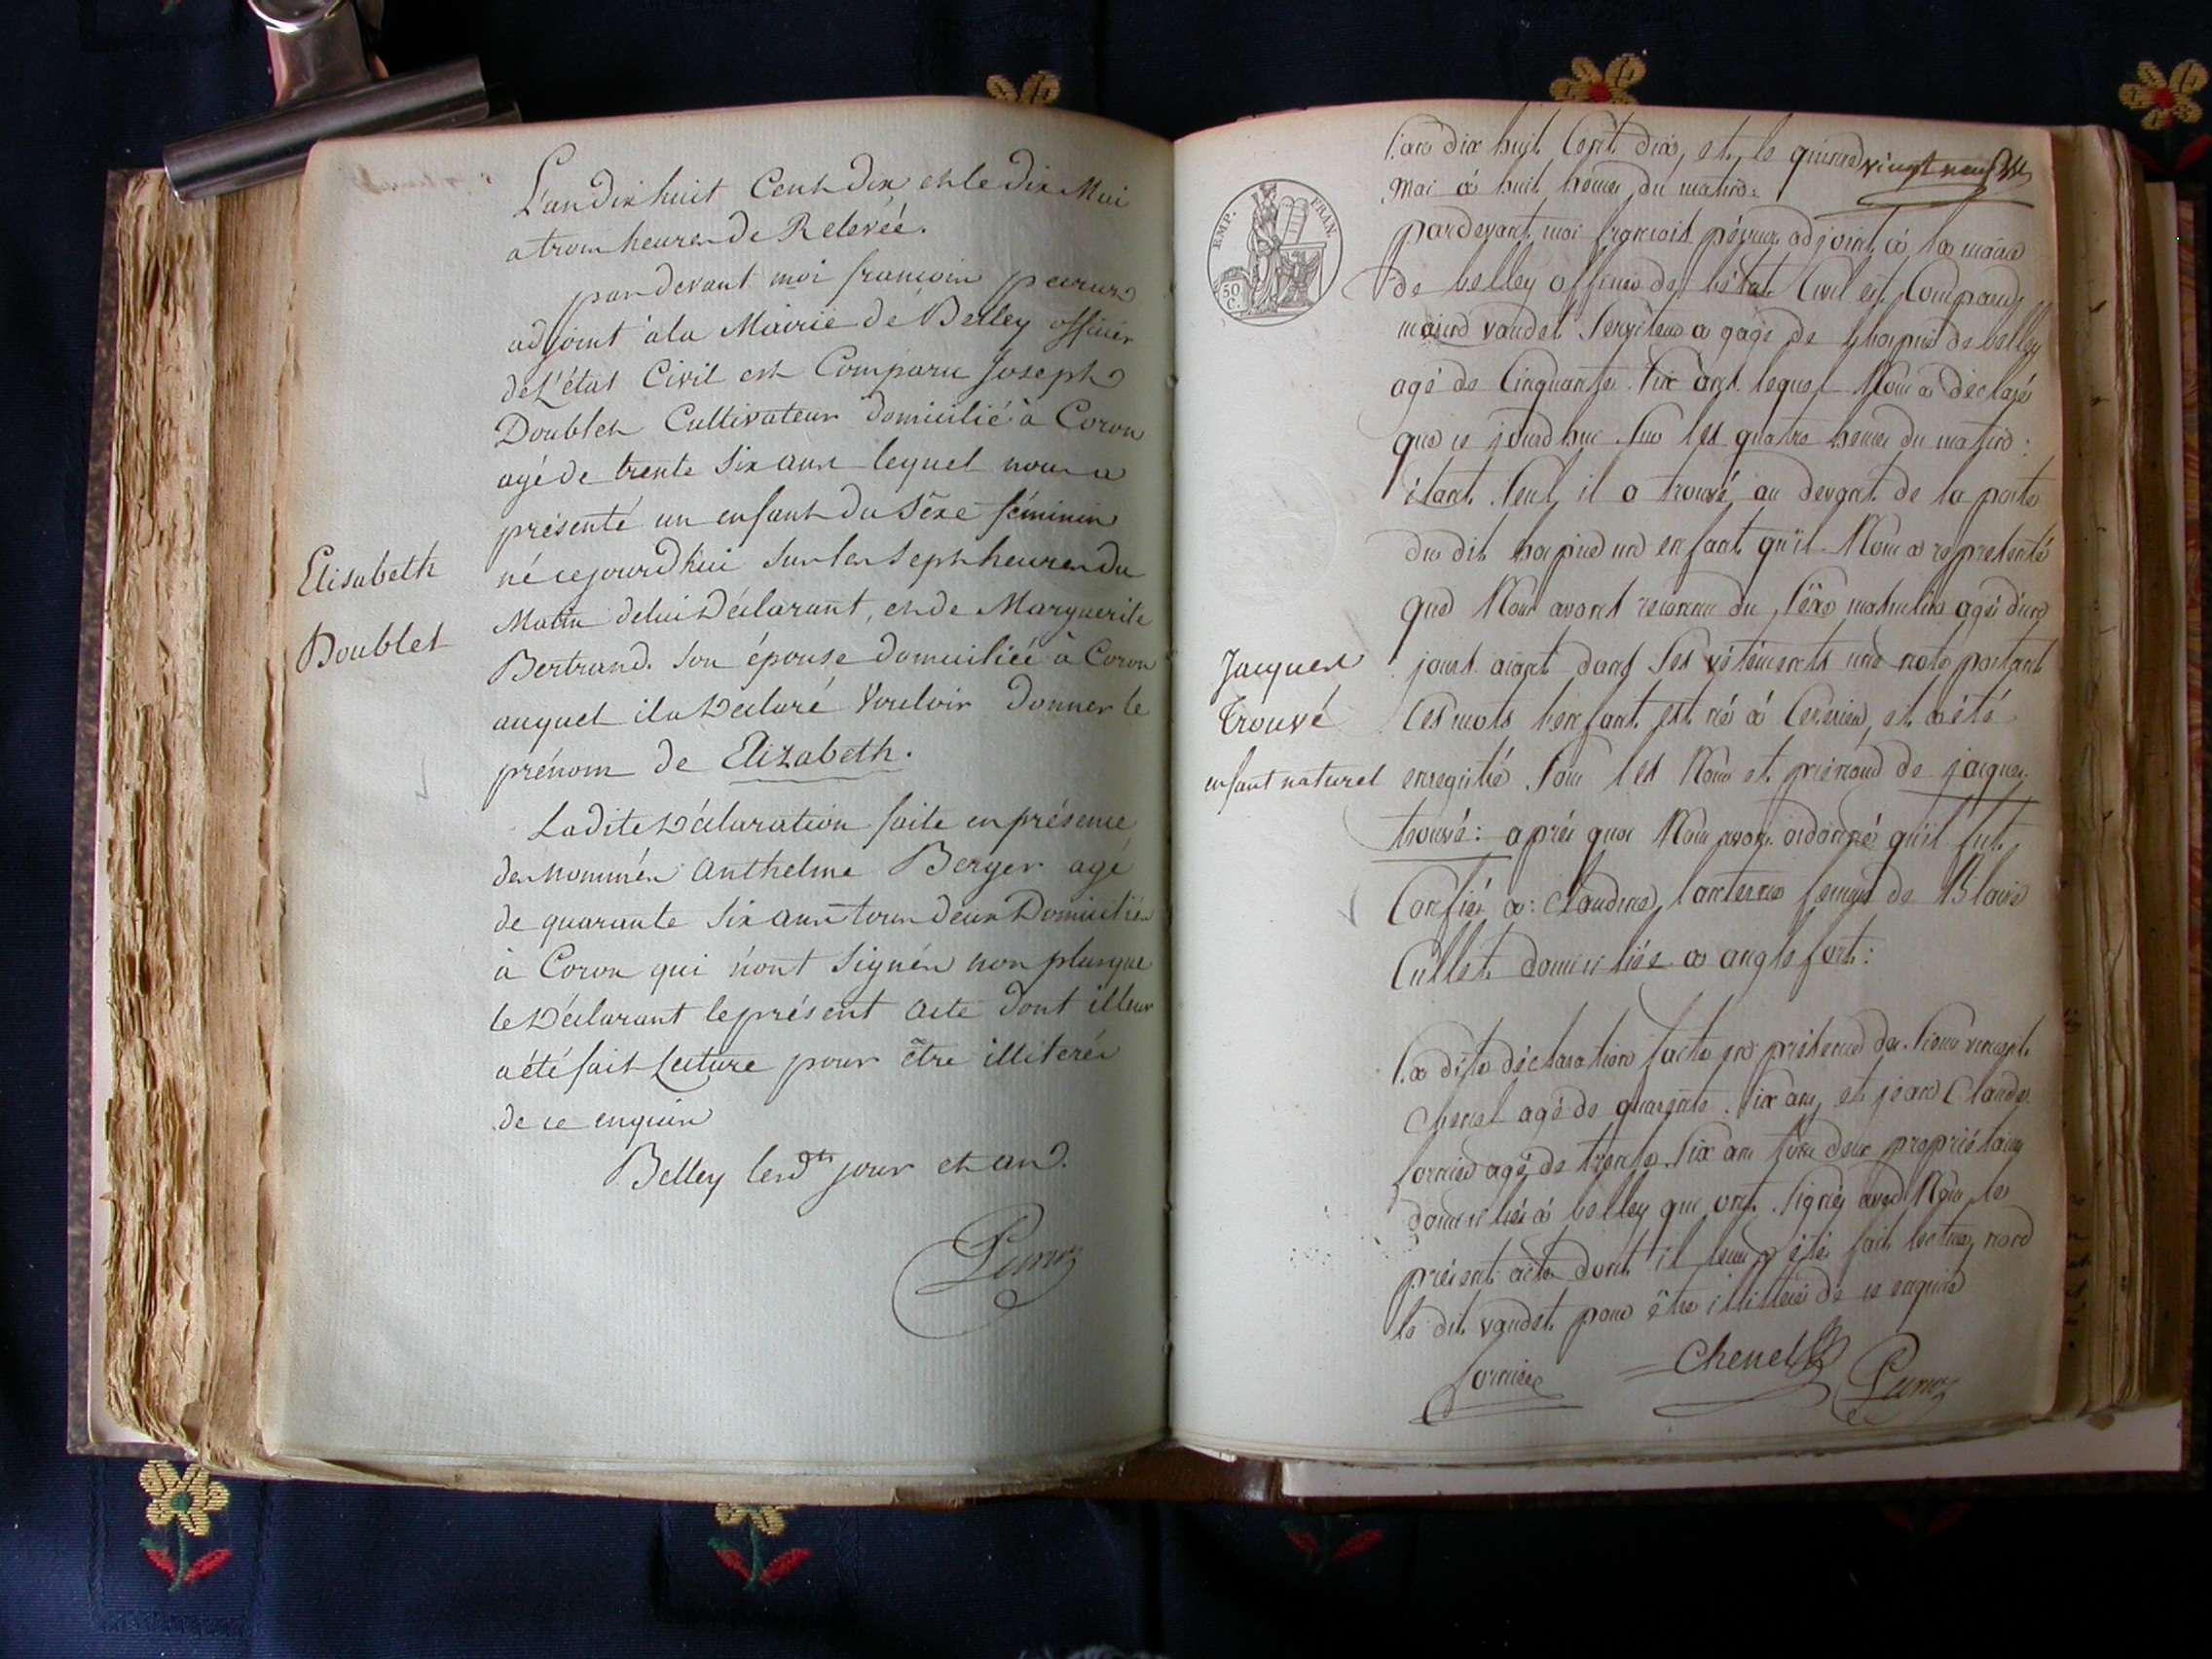 L'an dix huit Cent dix et le dix Mai
a trois heures de Relevée.
pardevant moi françois peiruz
adjoint à la Mairie de Belley officier
de L'état Civil est Comparu Joseph
Doublet Cultivateur domicilié à Coron
agé de trente six ans lequel nous a
présenté un enfant du séxe féminin
né cejourd'hui sur les sept heures du
Matin de lui Déclarant, et de Marguerite
Bertrand. Son épouse domiciliée à Coron
auquel il a Déclaré Vouloir Donner le
prénom de Elizabeth.
Elisabeth
Doublet
La dite Déclaration faite en présence
des nommés Anthelme Berger agé
de quarante six ans tous deux Domiciliés
à Coron qui n'ont signés non plus que
le Déclarant le présent acte dont il leur
a été fait Lecture pour être illiterés
de ce enquis
Belley les dits jour et an.
EMP. FRAN.
50 C.
L'an dix huit Cent dix, et le vingt neuf
mai à huit heures du matin:
pardevant moi françois péruz adjoint à la mairie
de belley officier de l'état Civil est Comparu
vaudet Serviteur a gage de l'hospice de belley
agé de Cinquante Six ans lequel Nous a déclaré
que ce jourd'hui Sur les quatre heures du matin:
étant Seul il a trouvé au devant de la porte
du dit hospice un enfant qu'il Nous a représenté
que Nous avons reconnu du Séxe masculin agé d'un
jour aiant dans Ses vétéments une note portant
Ces mots l'enfant est né à et a été
enregistré Sous les Nom et prénom de jacques
trouvé: après quoi Nous avons ordonné qu'il fut
Confié a: Claudine lanterne femme de Blaise
Cullet domiciliée a anglefort:
Jacques
Trouvé
enfant naturel
La dite déclaration faite en présence du Sieur vincent
Chenel agé de quarente Six ans, et jean Claude
fornier agé de trente Six ans tous deux propriétaires
domiciliés à belley qui ont Signés avec Nous le
présent acte dont il leur a été fait lecture, non
le dit vaudet pour être illitteré de ce enquis
fornier Chenel